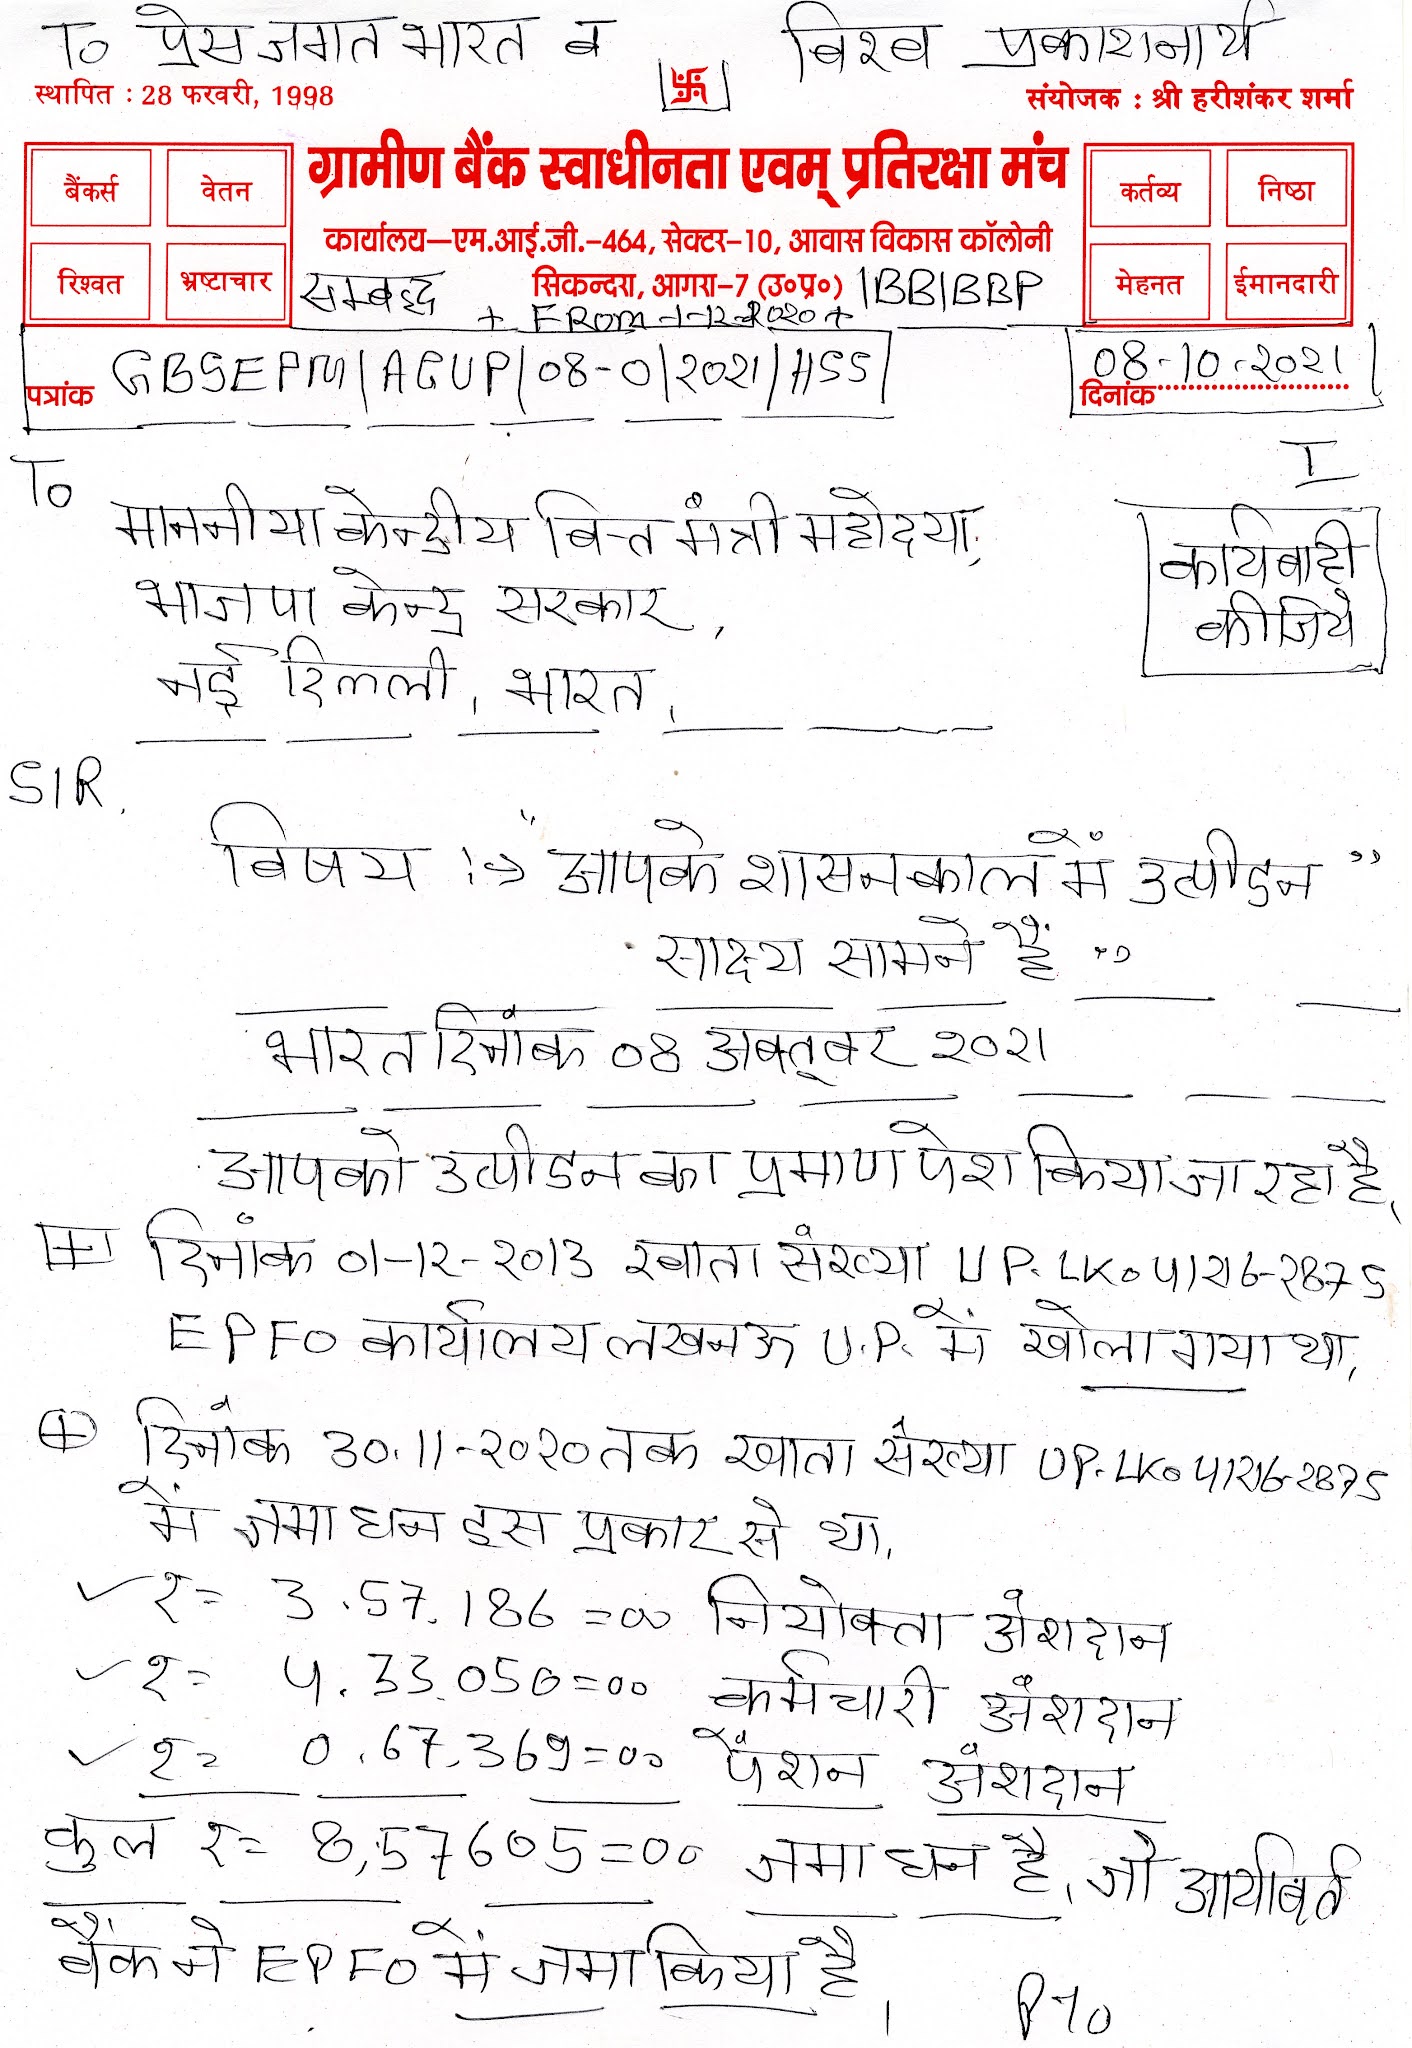 To प्रेस जगत भारत व विश्व प्रकाशनार्थ
स्थापित : 28 फरवरी, 1998
संयोजक : श्री हरीशंकर शर्मा
ग्रामीण बैंक स्वाधीनता एवम् प्रतिरक्षा मंच
बैंकर्स वेतन
कर्तव्य निष्ठा
कार्यालय–एम.आई.जी.–464, सेक्टर–10, आवास विकास कॉलोनी
रिश्वत भ्रष्टाचार
सम्बद्ध सिकन्दरा, आगरा–7 (उ०प्र०) IBBIBBP
मेहनत ईमानदारी
+ FROM-1-12-2020 +
पत्रांक GBSEPM/AGUP/08-0/2021/HSS
दिनांक 08-10-2021
I
To
माननीया केन्द्रीय वित्त मंत्री महोदया,
कार्यवाही
कीजिये
भाजपा केन्द्र सरकार,
नई दिल्ली, भारत,
SIR,
विषय :→ "आपके शासनकाल में उत्पीडन"
साक्ष्य सामने हैं "
भारत दिनांक 08 अक्तूबर २०२१
आपको उत्पीडन का प्रमाण पेश किया जा रहा है,
+ दिनांक 01-12-२०13 खाता संख्या UP.LKo 41216-2875
EPFO कार्यालय लखनऊ U.P. में खोला गया था,
+ दिनांक 30.11-२०२० तक खाता संख्या UP.LKo 41216-2875
में जमा धन इस प्रकार से था,
✓ रु= 3.57.186=00 नियोक्ता अंशदान
✓ रु= 4.33.050=00 कर्मचारी अंशदान
✓ रु= 0.67.369=00 पेंशन अंशदान
कुल रु= 8,57605=00 जमा धन है, जो आर्यावर्त
बैंक ने EPFO में जमा किया है,
PTO